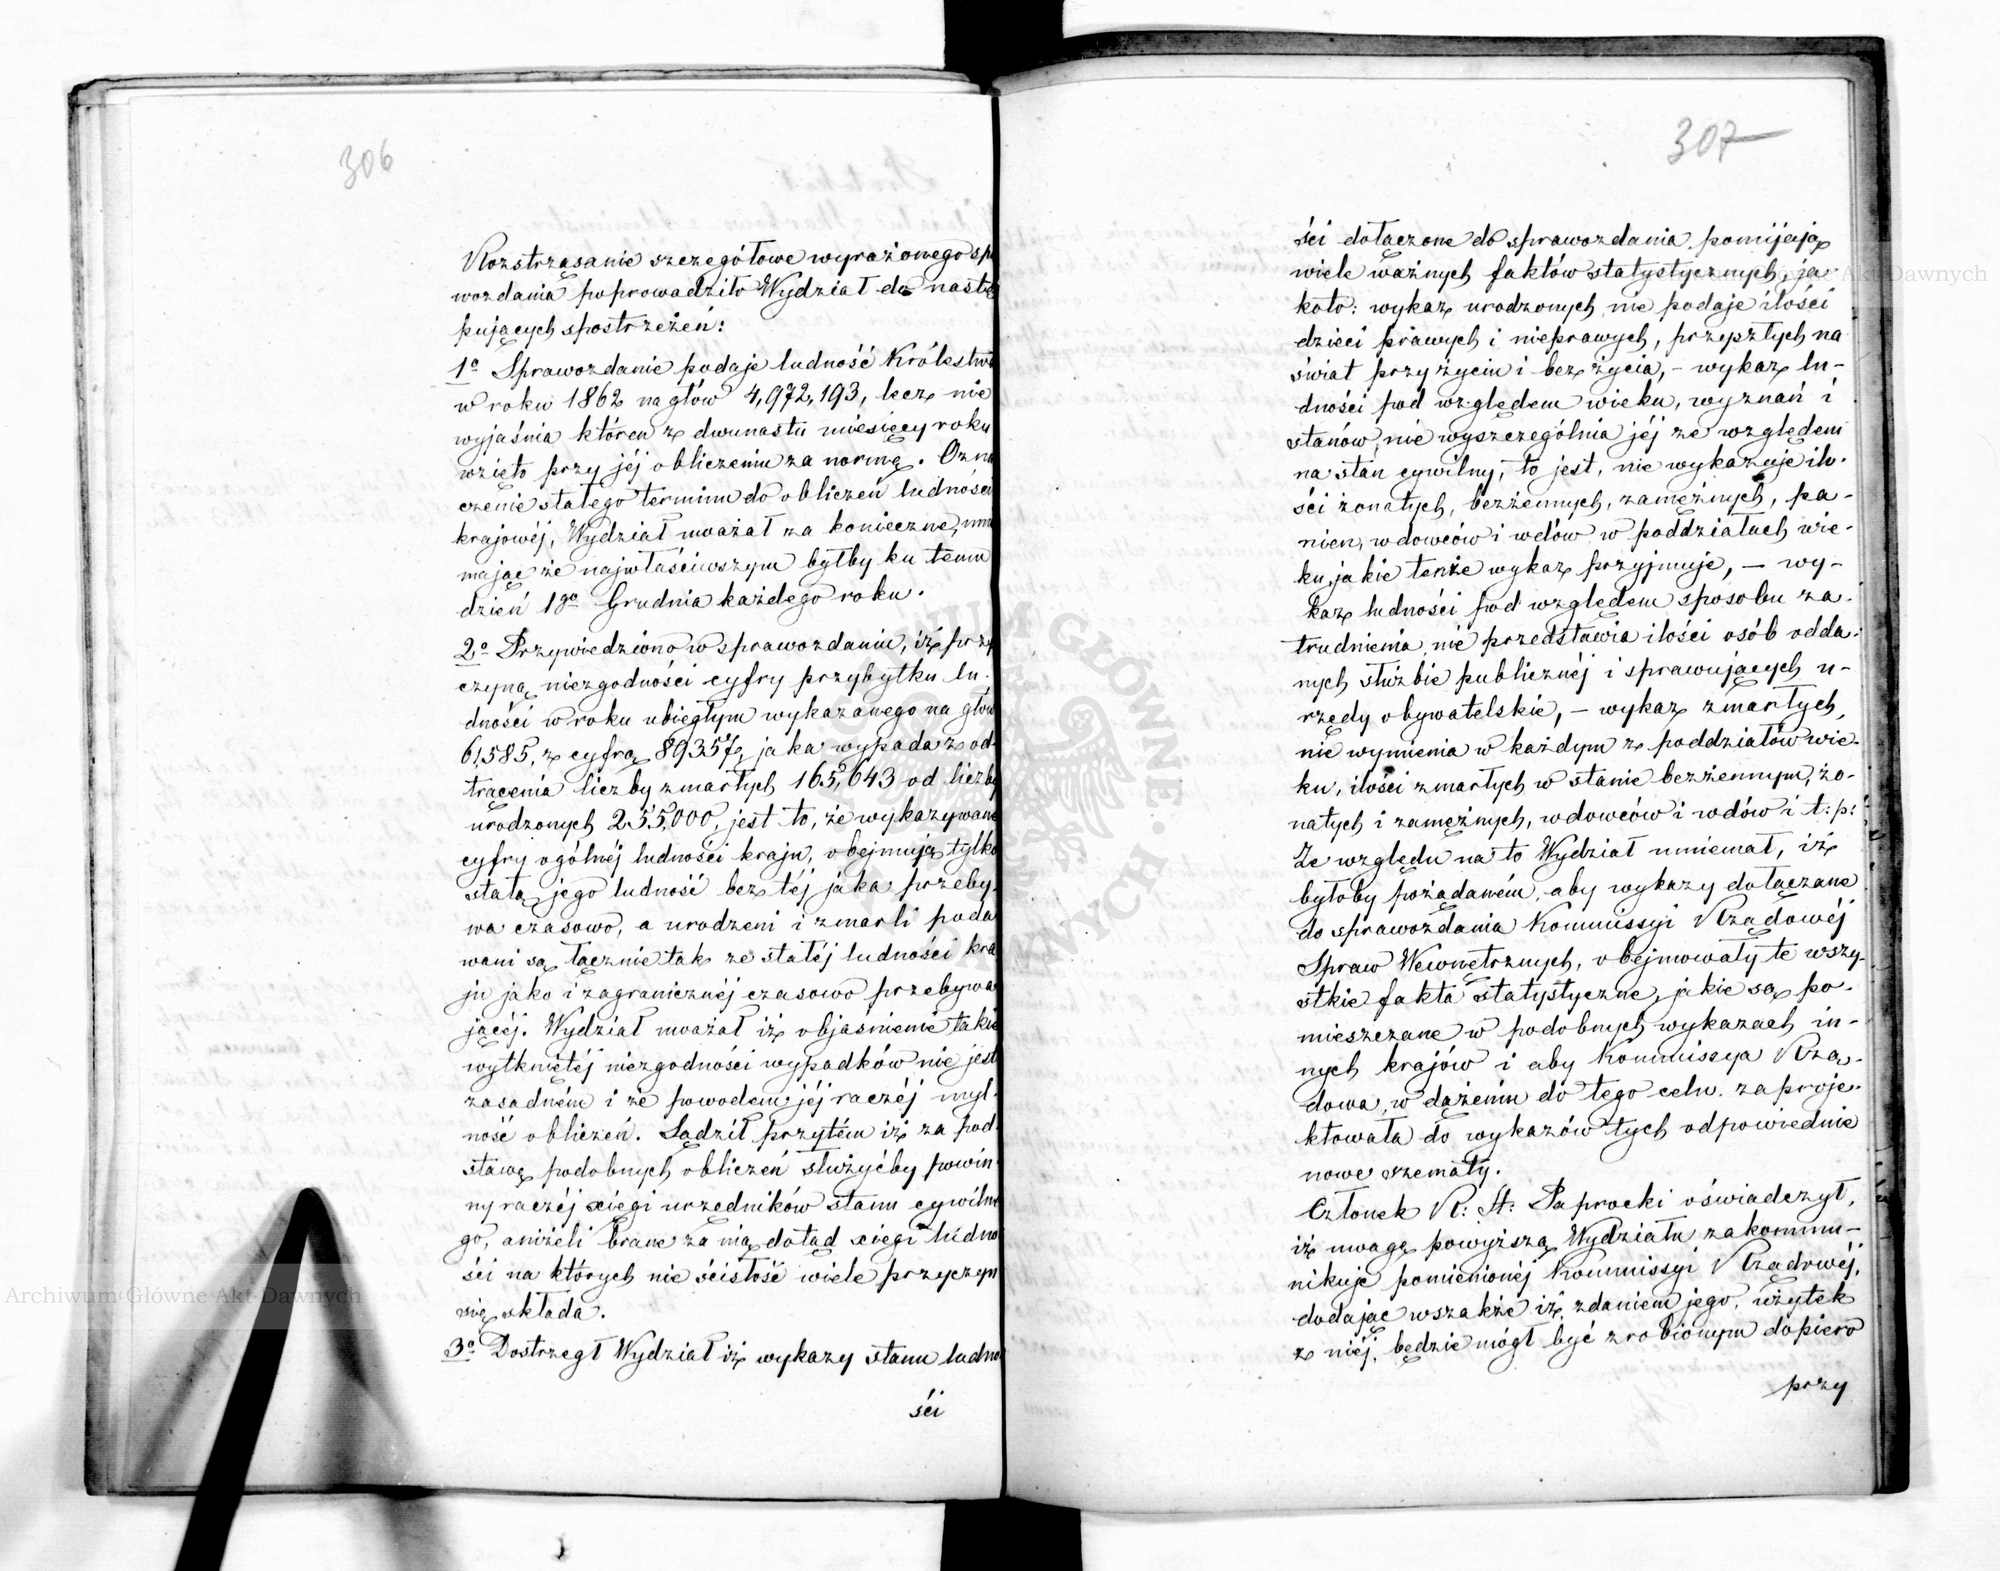 306
Rozstrząsanie szczegółowe wyrażonego sp
wozdania poprowadziło Wydział do nastę
pujących spostrzeżeń:
1o Sprawozdanie podaje ludność Królestw
w roku 1862 na głów 4,972,193, lecz nie
wyjaśnia któren z dwunastu miesięcy roku
wzięto przy jéj obliczeniu za normę. Ozna
czenie stałego terminu do obliczeń ludności
krajowéj, Wydział uważał za konieczne, mnie
mając że najwłaściwszym byłby ku temu
dzień 1go Grudnia każdego roku.
2o Przywiedziono w sprawozdaniu, iż przy
czyną niezgodności cyfry przybytku lu-
dności w roku ubiegłym wykazanego na głów
61,585, z cyfrą 89357, jaka wypada z od-
trącenia liczby zmarłych 165,643 od liczby
urodzonych 255,000, jest to, że wykazywane
cyfry ogólnéj ludności kraju, obejmują tylko
stałą jego ludność bez téj jaka przeby-
wa czasowo, a urodzeni i zmarli poda
wani są łącznie tak ze stałéj ludności kra
ju jako i zagranicznéj czasowo przebywa
jącéj. Wydział uważał iż objaśnienie takie
wytkniętéj niezgodności wypadków nie jest
zasadném i że powodem jéj raczéj myl-
ność obliczeń. Sądził przytém iż za pod-
stawę podobnych obliczeń służyćby powin-
ny raczéj xięgi urzędników stanu cywilne
go, aniżeli brane za nią dotąd xięgi ludno
ści na których nie ścisłość wiele przyczyn
się składa.
3o Dostrzegł Wydział iż wykazy stanu ludno
ści
307
ści dołączone do sprawozdania pomijają
wiele ważnych faktów statystycznych, ja-
koto: wykaz urodzonych nie podaje ilości
dzieci prawych i nieprawych, przyszłych na
świat przy życiu i bez życia, – wykaz lu-
dności pod względem wieku, wyznań i
stanów, nie wyszczególnia jéj ze względem
na stan cywilny, to jest, nie wykazuje ilo-
ści żonatych, bezżennych, zamężnych, pa-
nien, wdowców i wdów w poddziałach wie-
ku, jakie tenże wykaz przyjmuje, – wy-
kaz ludności pod względem sposobu za-
trudnienia nie przedstawia ilości osób odda-
nych służbie publicznéj i sprawujących u-
rzędy obywatelskie, – wykaz zmarłych,
nie wymienia w każdym z poddziałów wie-
ku, ilości zmarłych w stanie bezżennym, żo-
natych i zamężnych, wdowców i wdów i t: p:
Ze względu na to Wydział mniemał, iż
byłoby pożądaném, aby wykazy dołączane
do sprawozdania Kommissyi Rządowéj
Spraw Wewnętrznych, obejmowały te wszy-
stkie fakta statystyczne, jakie są po-
mieszczane w podobnych wykazach in-
nych krajów i aby Kommissya Rzą-
dowa, w dążeniu do tego celu, zaproje-
ktowała do wykazów tych odpowiednie
nowe szematy.
Członek R: St: Paprocki oświadczył,
iż uwagę powyższą Wydziału zakommu-
nikuje pomienionéj Kommissyi Rządowéj,
dodając wszakże iż zdaniem jego, użytek
z niéj, będzie mógł być zrobionym dopiero
przy
Archiwum Główne Akt Dawnych
Archiwum Główne Akt Dawnych